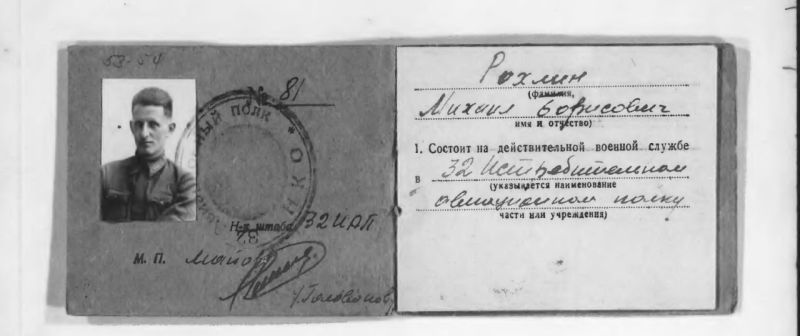 53-54
№ 81
Н-к штаба 32 ИАП
М. П. Майор
Рохлин
(фамилия,
Михаил Борисович
имя и отчество)
1. Состоит на действительной военной службе
в 32 Истребительном
(указывается наименование
авиационном полку
части или учреждения)